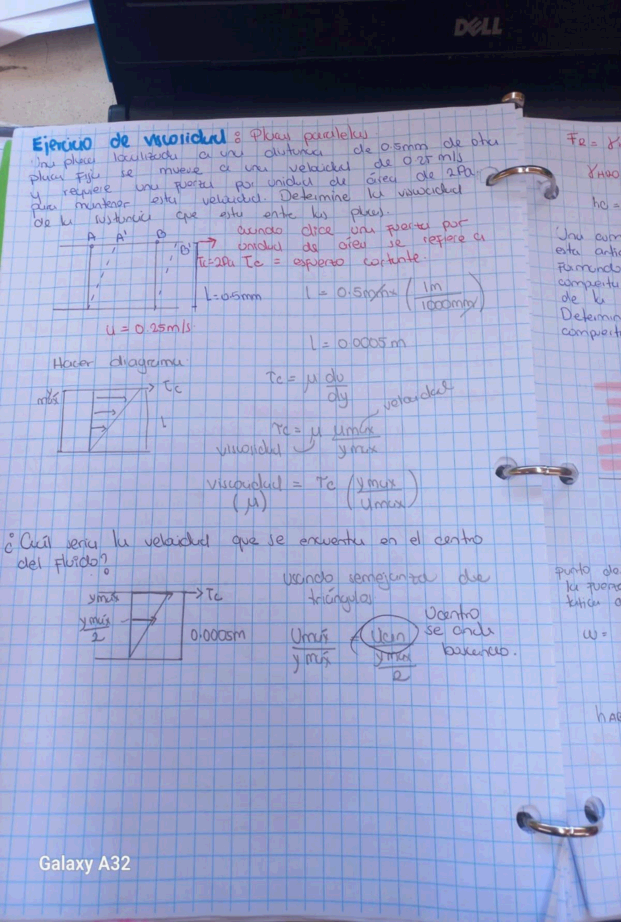 DELL
Ejercicio de viscosidad: Placas paralelas
Una placa localizada a una distancia de 0.5mm de otra
placa fija se mueve a una velocidad de 0.25 m/s
y requiere una fuerza por unidad de área de 2Pa
para mantener esta velocidad. Determine la viscocidad
de la sustancia que esta entre las placas.
A A' B B'
cuando dice una fuerza por
unidad de área se refiere a
τc=2Pa τc = esfuerzo cortante.
l=0.5mm l = 0.5mm x (1m / 1000mm)
u = 0.25m/s
l = 0.0005m
Hacer diagrama
ymáx τc
l
τc = μ du/dy
velocidad
τc = μ umáx/ymáx
viscosidad
viscosidad = τc (ymax/umax)
(μ)
¿Cuál sería la velocidad que se encuentra en el centro
del fluido?
usando semejanza de
triángulos
ymáx τc
ymáx/2
0.0005m
Umáx/ymáx = Ucen/(ymáx/2)
Ucentro
se anda
buscando.
FR = γ
γH2O
hc =
Una
esta
Formando
compuerta
de la
Determin
compuert
punto de
la fuerza
w =
Galaxy A32